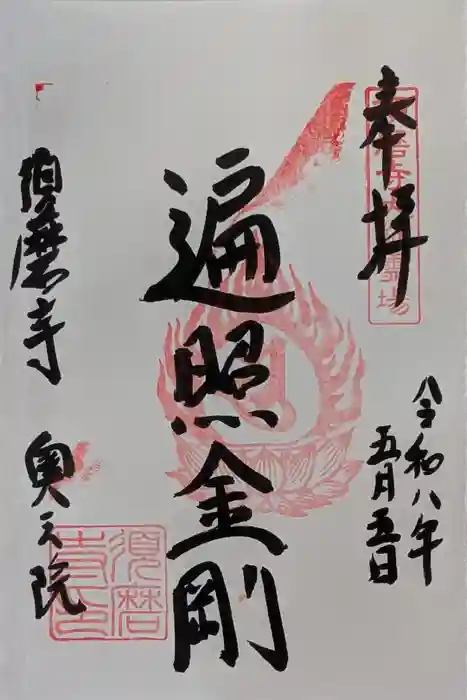 奉拝
令和八年
五月五日
遍照金剛
須磨寺 奥之院
須磨
寺印